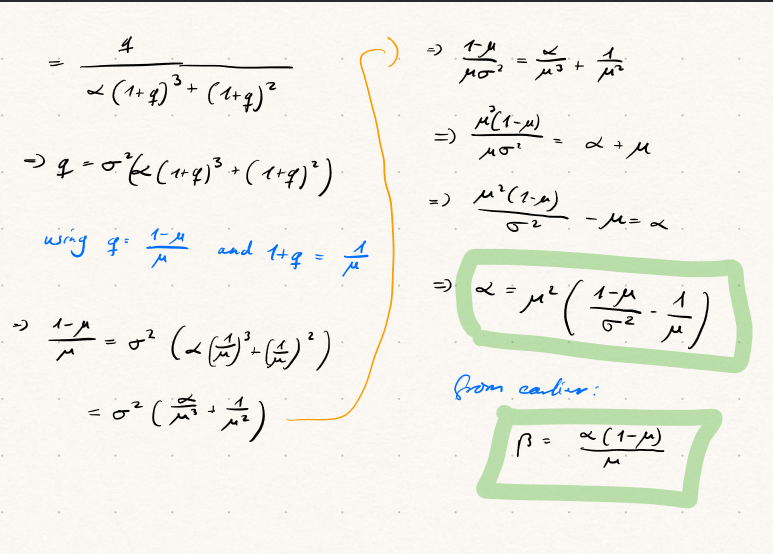 = q / (α(1+q)³ + (1+q)²)
⇒ q = σ²(α(1+q)³ + (1+q)²)
using q = (1-μ)/μ and 1+q = 1/μ
⇒ (1-μ)/μ = σ² (α(1/μ)³ + (1/μ)²)
= σ² (α/μ³ + 1/μ²)
⇒ (1-μ)/(μσ²) = α/μ³ + 1/μ²
⇒ μ³(1-μ)/(μσ²) = α + μ
⇒ μ²(1-μ)/σ² - μ = α
⇒ α = μ² ((1-μ)/σ² - 1/μ)
from earlier:
β = α(1-μ)/μ